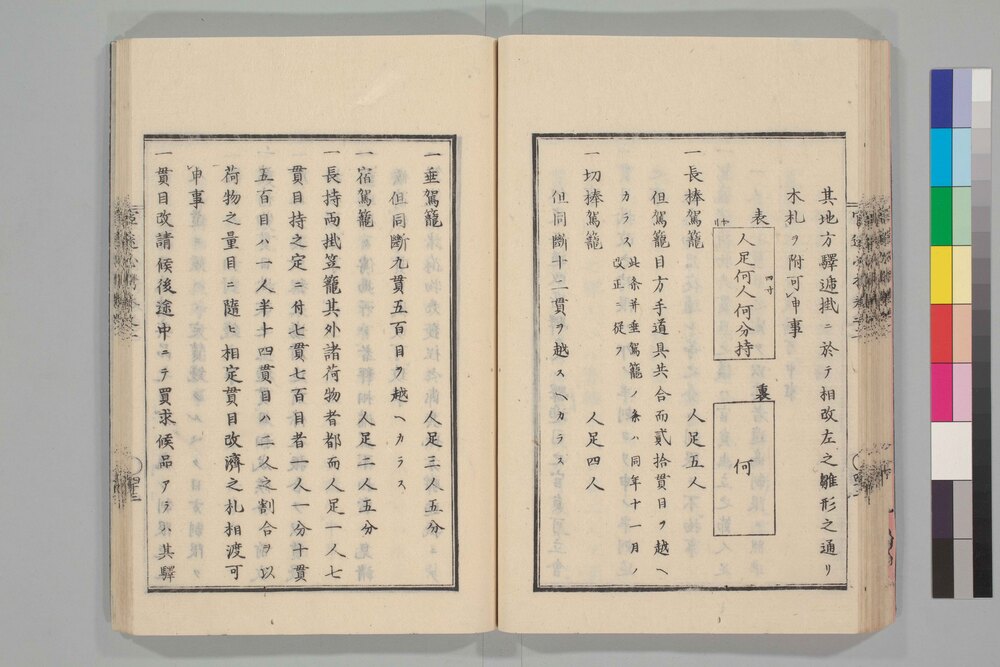 其地方驛遞掛ニ於テ相改左之雛形之通リ
木札ヲ附可申事
表
四寸
人足何人何分持
裏
何
一長棒駕籠 人足五人
但駕籠目方手道具共合而貳拾貫目ヲ越ヘ
カラス此条并垂駕籠ノ条ハ同年十一月ノ
改正ニ從フ
一切捧駕籠 人足四人
但同斷十二貫ヲ越スヘカラス
一垂駕籠 人足三人五分
但同斷九貫五百目ヲ越ヘカラス
一宿駕籠 人足二人五分
一長持両掛笠籠其外諸荷物者都而人足一人七
貫目持之定ニ付七貫七百目者一人一分十貫
五百目ハ一人半十四貫目ハ二人之割合ヲ以
荷物之量目ニ隨ヒ相定貫目改濟之札相渡可
申事
一貫目改請候後途中ニテ買求候品アラハ其驛